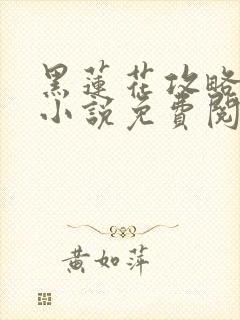 黑蓮花攻略
小說免費閱
黃如萍